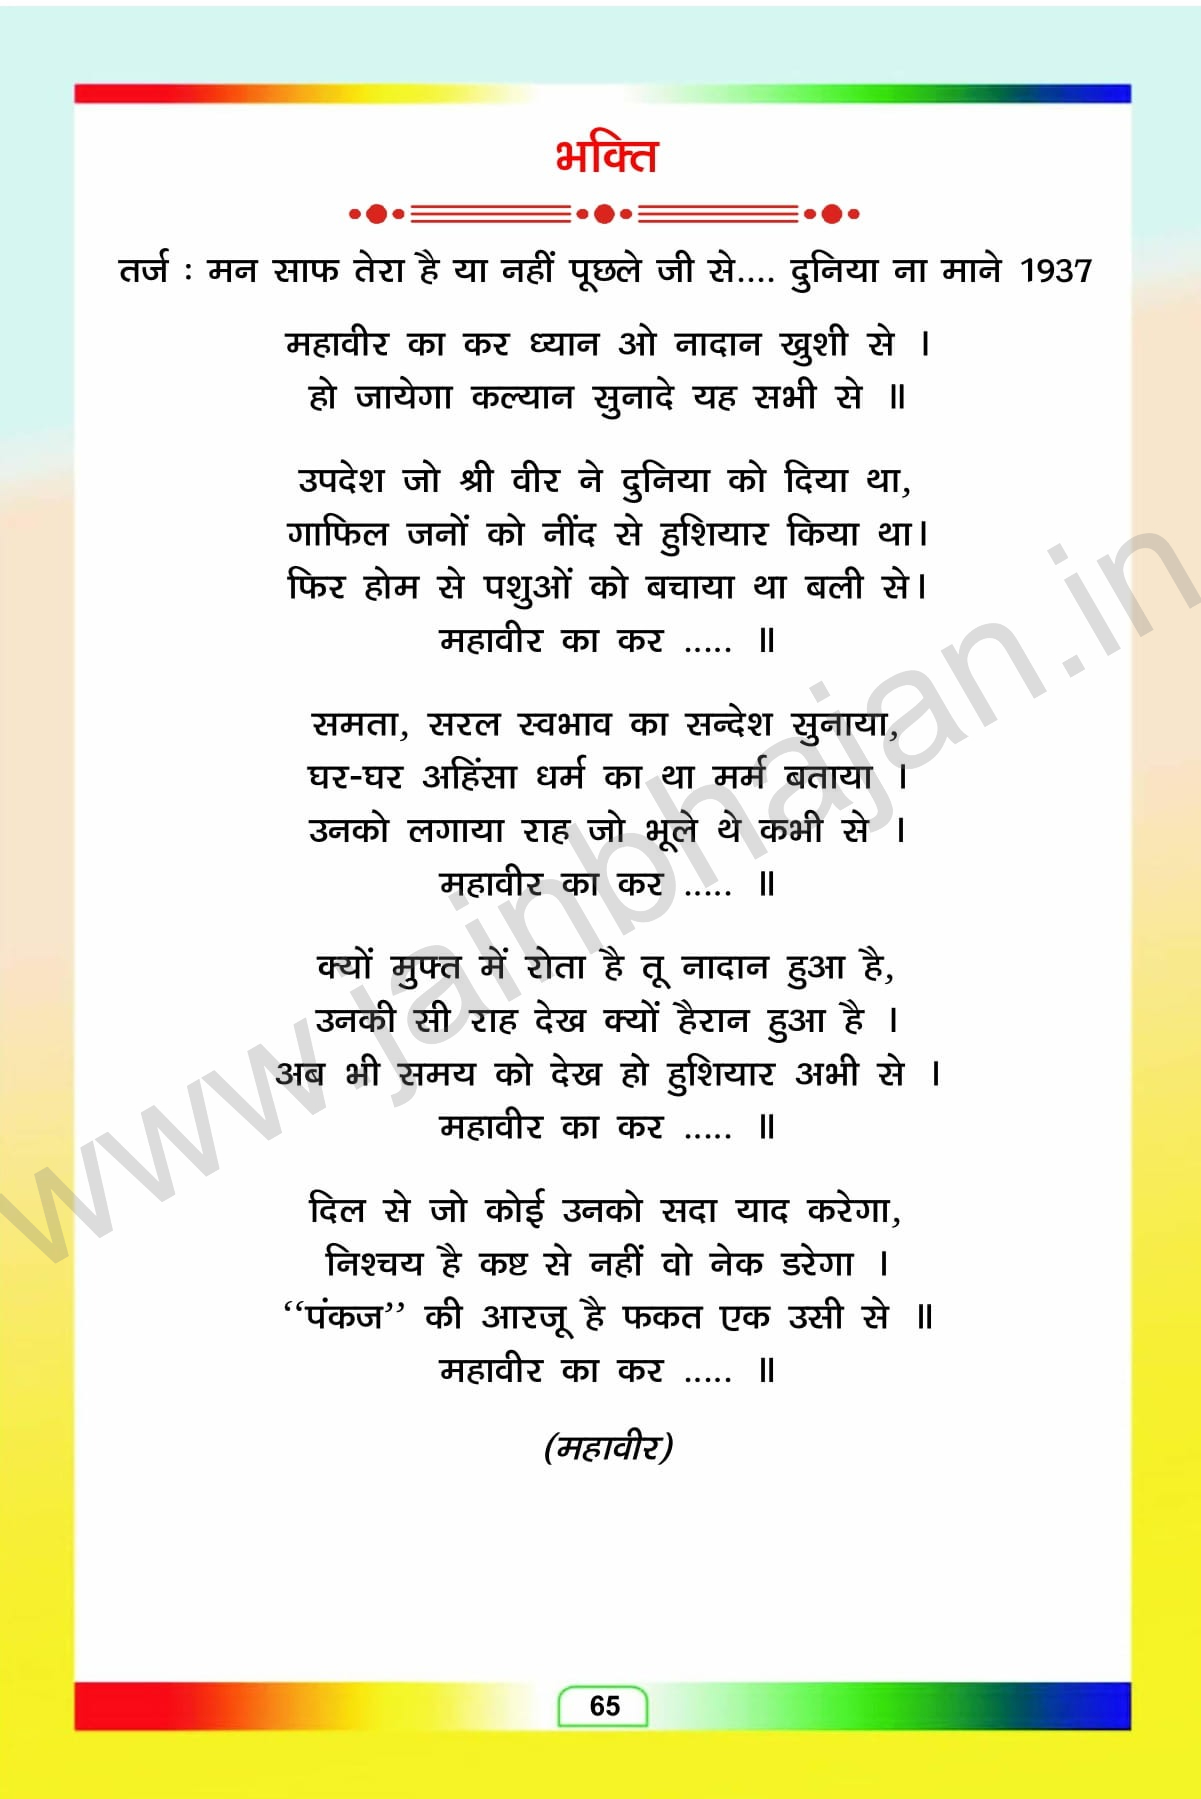 भक्ति
तर्ज : मन साफ तेरा है या नहीं पूछले जी से.... दुनिया ना माने 1937
महावीर का कर ध्यान ओ नादान खुशी से ।
हो जायेगा कल्यान सुनादे यह सभी से ॥
उपदेश जो श्री वीर ने दुनिया को दिया था,
गाफिल जनों को नींद से हुशियार किया था।
फिर होम से पशुओं को बचाया था बली से।
महावीर का कर ..... ॥
समता, सरल स्वभाव का सन्देश सुनाया,
घर-घर अहिंसा धर्म का था मर्म बताया ।
उनको लगाया राह जो भूले थे कभी से ।
महावीर का कर ..... ॥
क्यों मुफ्त में रोता है तू नादान हुआ है,
उनकी सी राह देख क्यों हैरान हुआ है ।
अब भी समय को देख हो हुशियार अभी से ।
महावीर का कर ..... ॥
दिल से जो कोई उनको सदा याद करेगा,
निश्चय है कष्ट से नहीं वो नेक डरेगा ।
“पंकज” की आरजू है फकत एक उसी से ॥
महावीर का कर ..... ॥
(महावीर)
65
www.jainbhajan.in